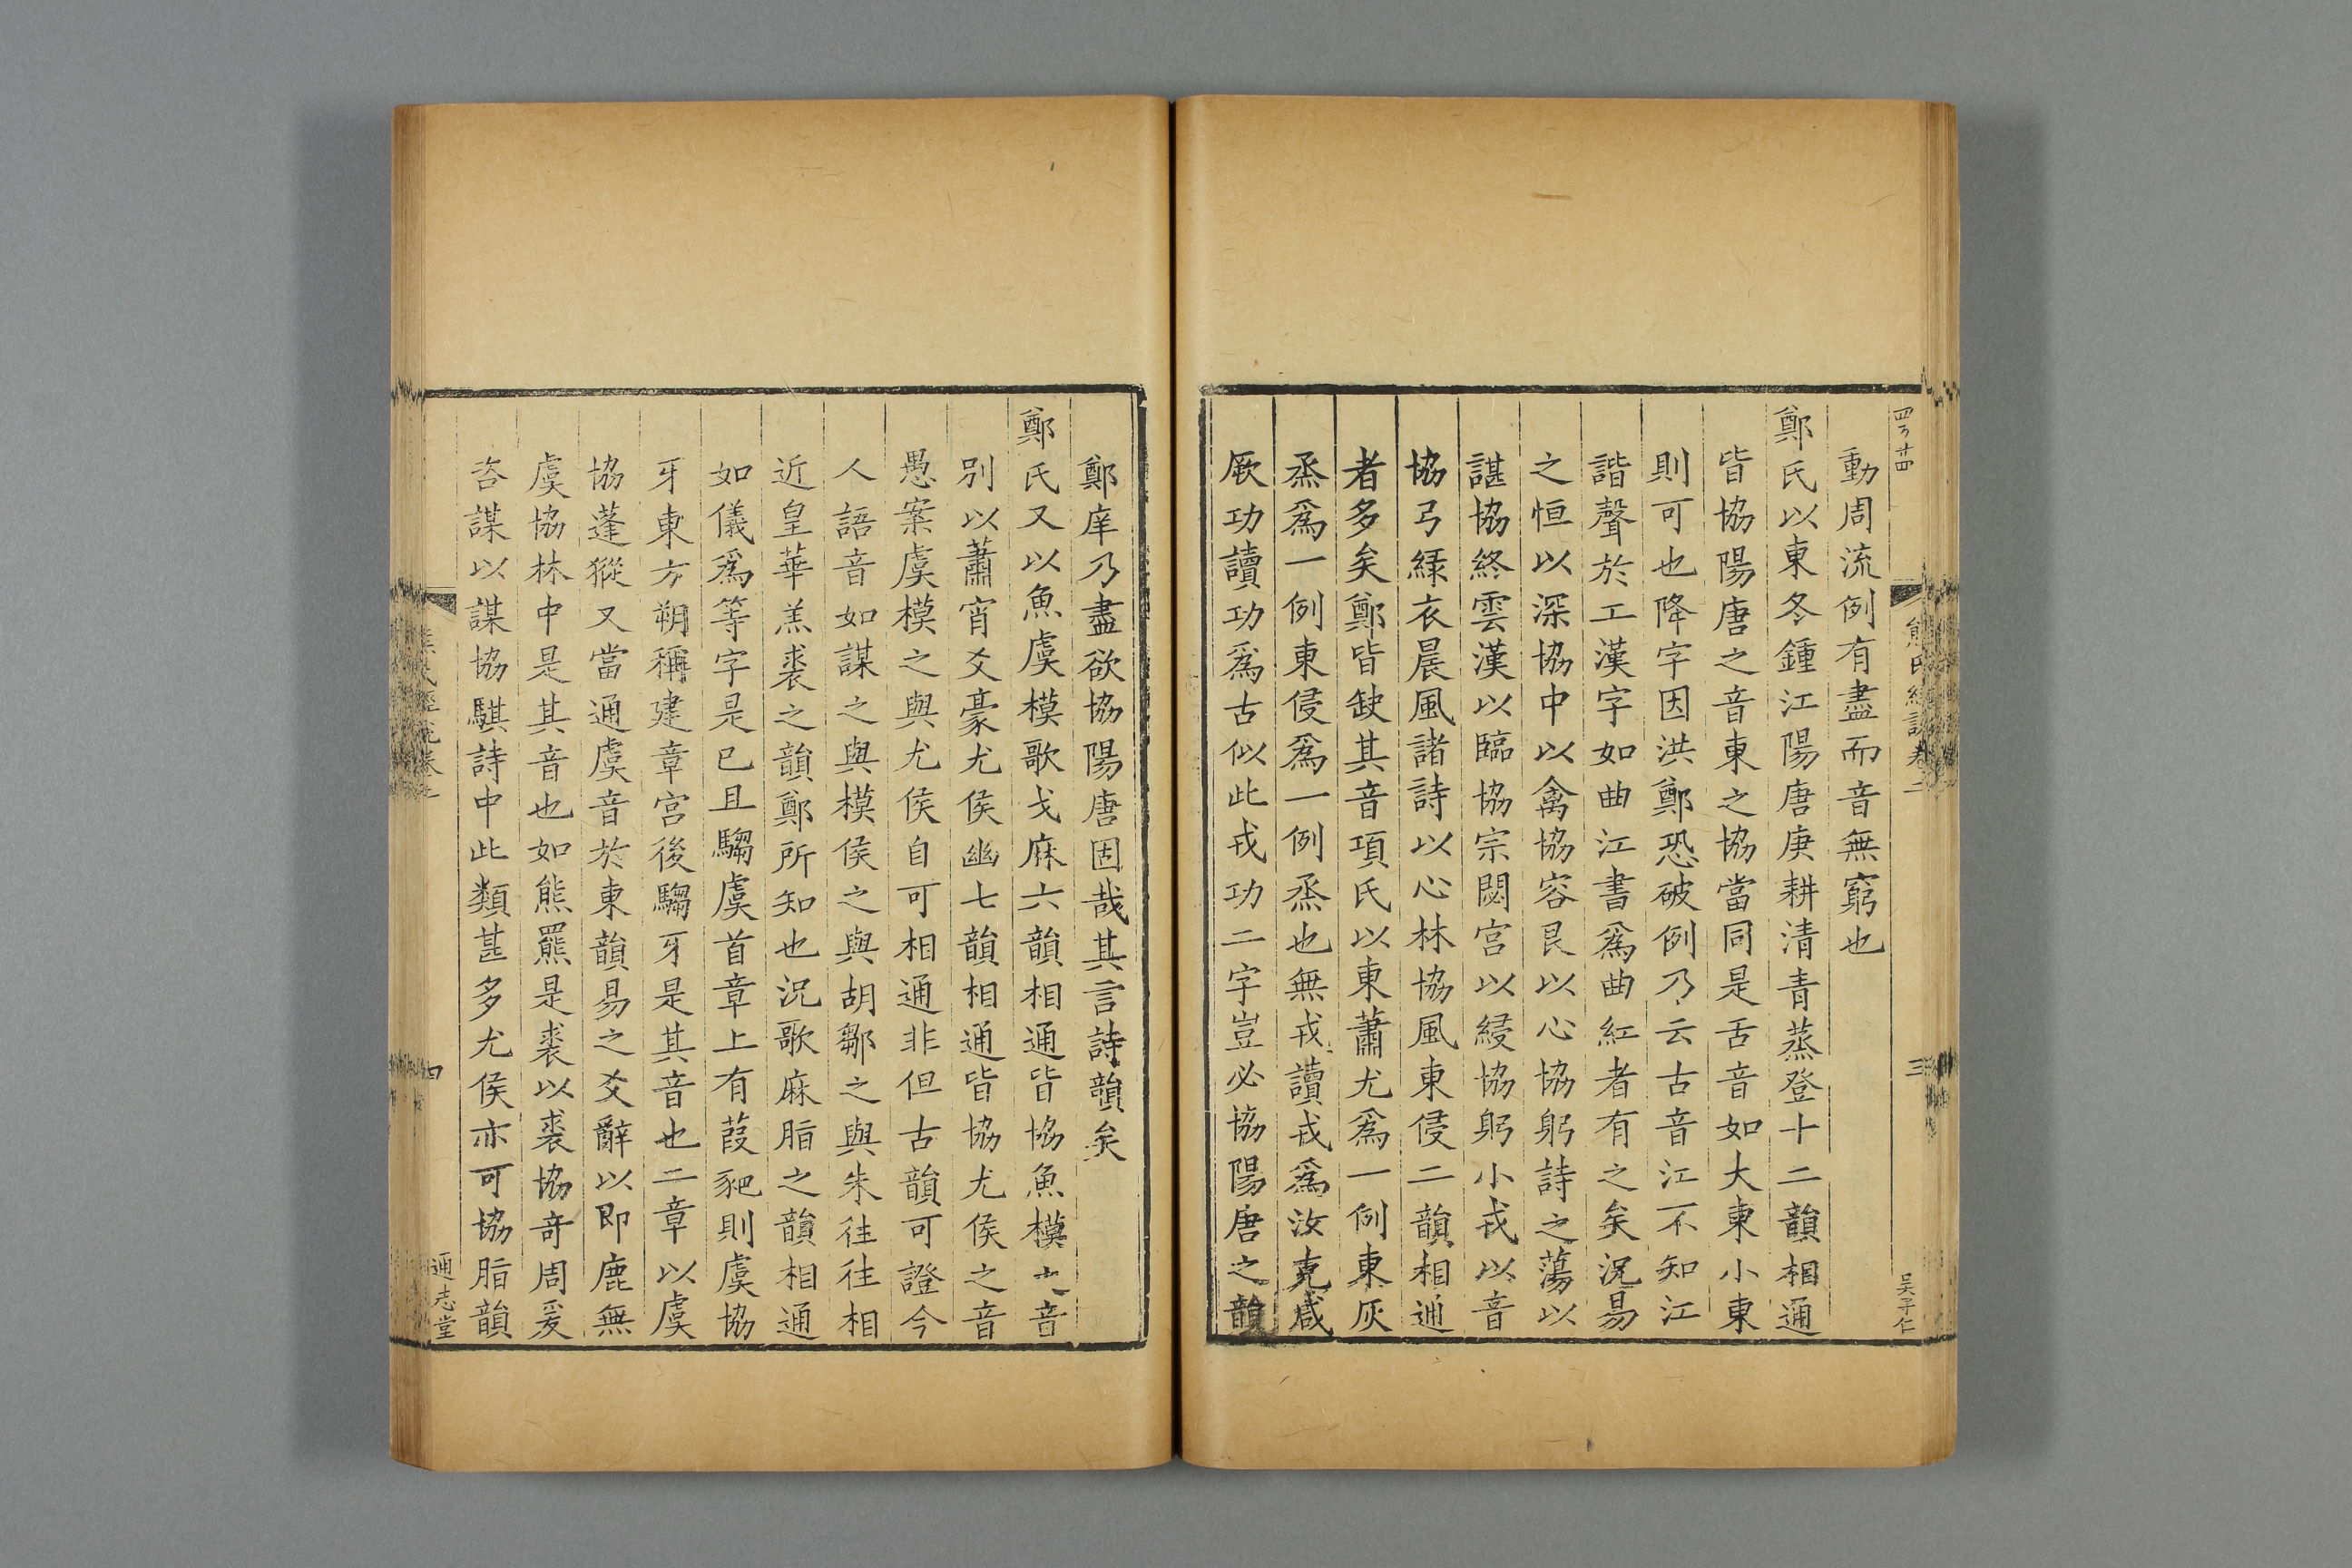 動周流例有盡而音無窮也
鄭氏以東冬鍾江陽唐庚耕清青蒸登十二韻相通
皆協陽唐之音東之協當同是舌音如大東小東
則可也降字因洪鄭恐破例乃云古音江不知江
諧聲於工漢字如曲江書爲曲紅者有之矣況易
之恒以深協中以禽協容艮以心協躬詩之蕩以
諶協終雲漢以臨協宗閟宫以綅協躬小戎以音
協弓綠衣晨風諸詩以心林協風東侵二韻相通
者多矣鄭皆缺其音項氏以東蕭尤爲一例東灰
烝爲一例東侵爲一例烝也無戎讀戎爲汝克咸
厥功讀功爲古似此戎功二字豈必協陽唐之韻
吴子仁
三
鄭庠乃盡欲協陽唐固哉其言詩韻矣
鄭氏又以魚虞模歌戈麻六韻相通皆協魚模之音
别以蕭宵爻豪尤侯幽七韻相通皆協尤侯之音
愚案虞模之與尤侯自可相通非但古韻可證今
人語音如謀之與模侯之與胡鄒之與朱往往相
近皇華羔裘之韻鄭所知也況歌麻脂之韻相通
如儀爲等字是已且騶虞首章上有葭豝則虞協
牙東方朔稱建章宮後騶牙是其音也二章以虞
協蓬豵又當通虞音於東韻易之爻辭以即鹿無
虞協林中是其音也如熊羆是裘以裘協奇周爰
咨謀以謀協騏詩中此類甚多尤侯亦可協脂韻
四
通志堂